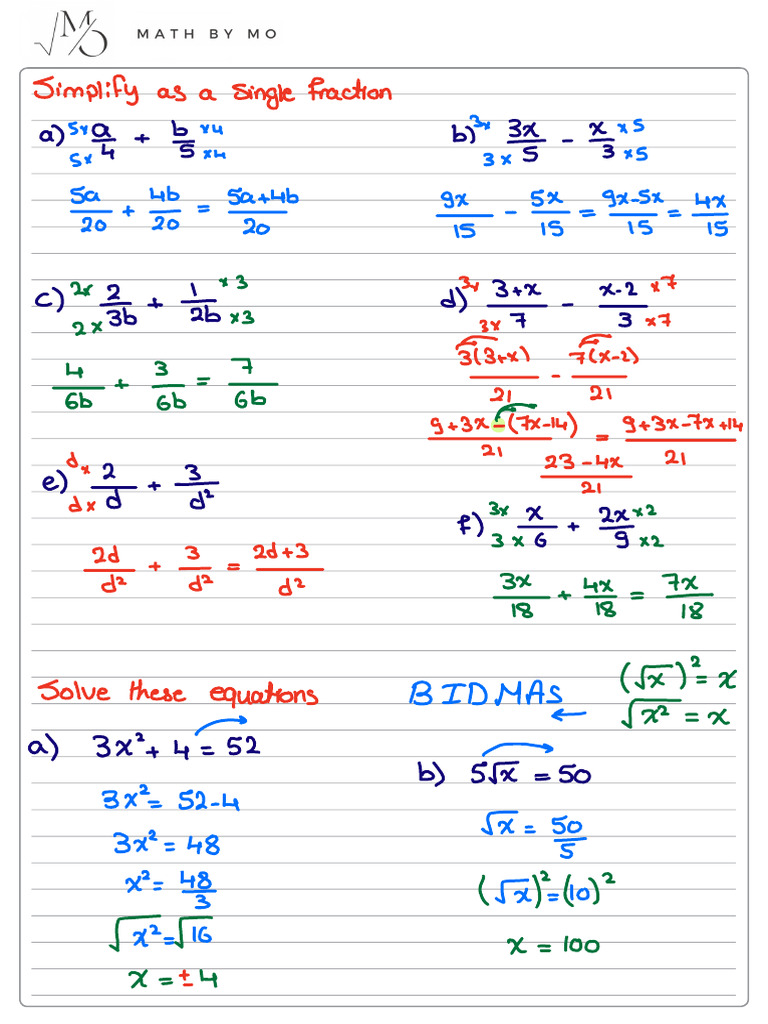 √M/O MATH BY MO
Simplify as a single fraction
a) 5× a/4 5× + b/5 ×4 ×4
5a/20 + 4b/20 = 5a+4b/20
b) 3× 3x/5 3× - x/3 ×5 ×5
9x/15 - 5x/15 = 9x-5x/15 = 4x/15
c) 2× 2/3b 2× + 1/2b ×3 ×3
4/6b + 3/6b = 7/6b
d) 3× 3+x/7 3× - x-2/3 ×7 ×7
3(3+x)/21 - 7(x-2)/21
9+3x-(7x-14)/21 = 9+3x-7x+14/21
23-4x/21
e) d× 2/d d× + 3/d²
2d/d² + 3/d² = 2d+3/d²
f) 3× x/6 3× + 2x/9 ×2 ×2
3x/18 + 4x/18 = 7x/18
Solve these equations
BIDMAS
(√x)² = x
√x² = x
a) 3x² + 4 = 52
3x² = 52-4
3x² = 48
x² = 48/3
√x² = √16
x = ±4
b) 5√x = 50
√x = 50/5
(√x)² = (10)²
x = 100